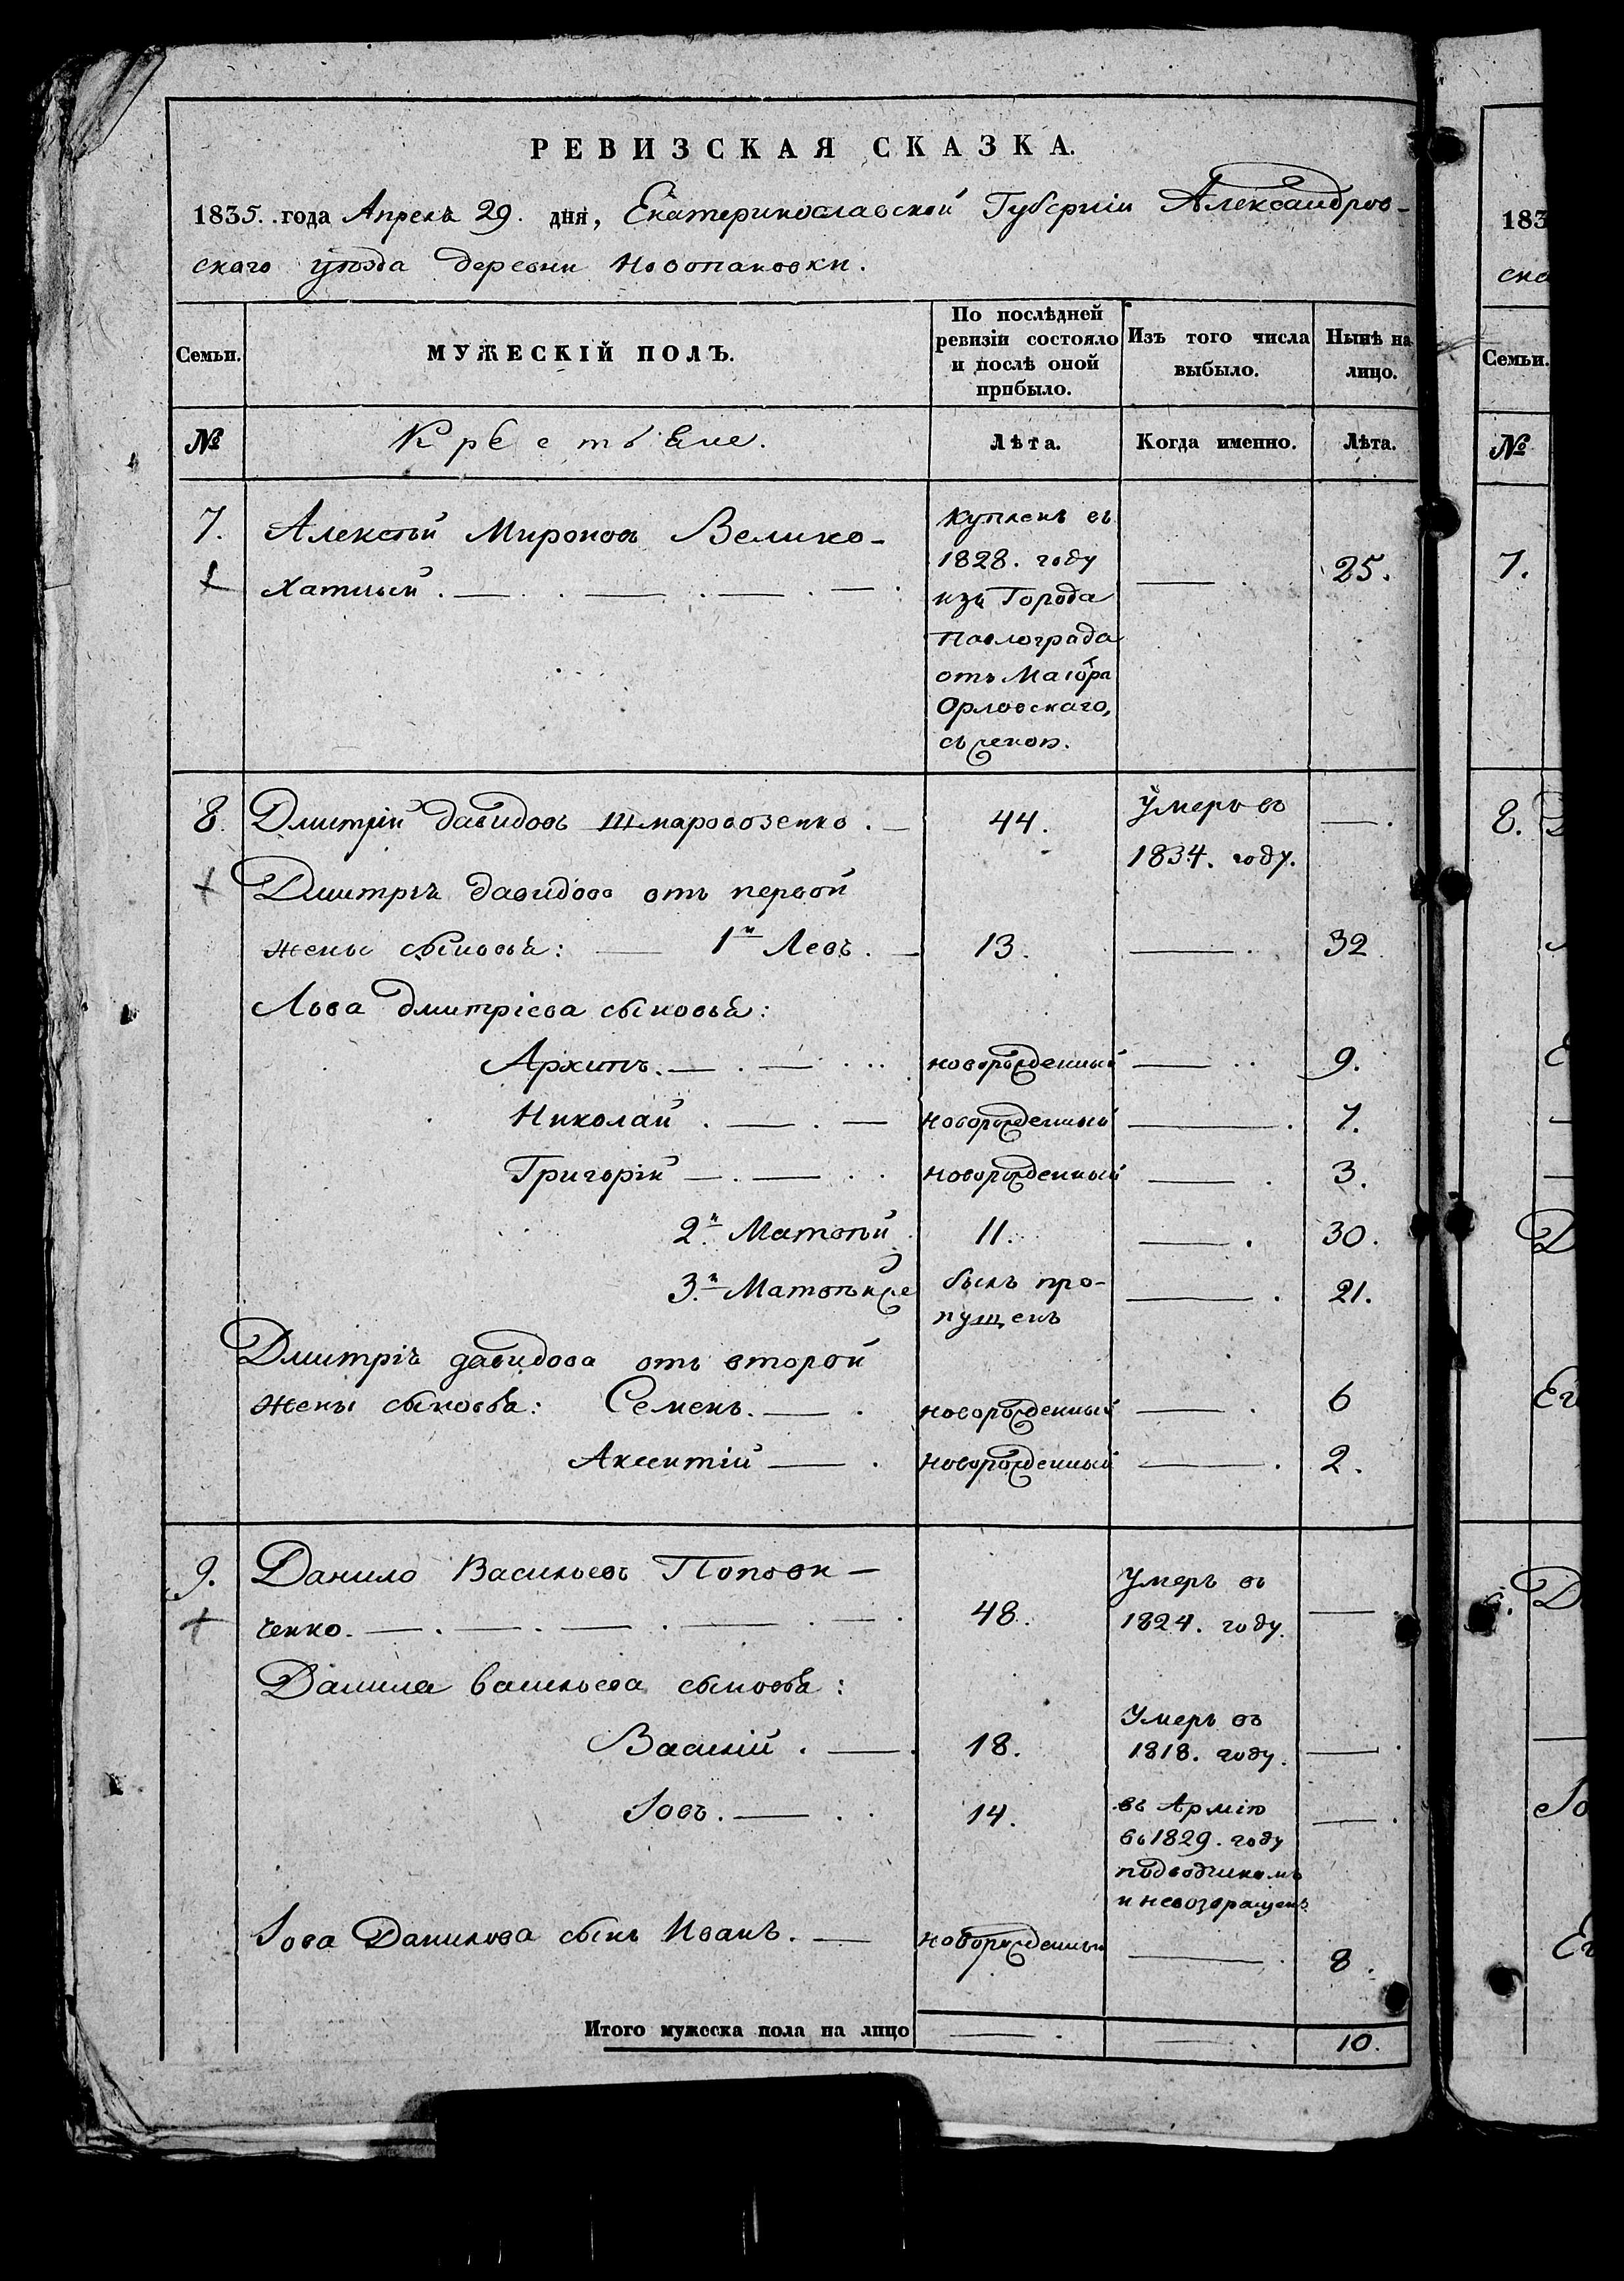 РЕВИЗСКАЯ СКАЗКА.
1835. года Апреля 29. дня, Екатеринославской Губерніи Александров-
скаго уѣзда деревни Новопановки.
Семьи. МУЖЕСКІЙ ПОЛЪ. По послѣдней ревизіи состояло и послѣ оной прибыло. Изъ того числа выбыло. Нынѣ на лицо.
№ Крестьяне. Лѣта. Когда именно. Лѣта.
7. Алексѣй Мироновъ Велико-
хатный. 25.
Купленъ въ
1828. году
изъ Города
Павлограда
отъ Маіора
Орловскаго,
8. Дмитрій Давидовъ Шмаровозенко. 44. Умеръ въ
1834. году.
Дмитрія Давидова отъ первой
жены сыновья: 1й Левъ. 13. 32
Льва Дмитріева сыновья:
Архипъ. новорожденный 9.
Николай. новорожденный 7.
Григорій новорожденный 3.
2й Матвѣй 11. 30.
3й Матвѣй же былъ про-
пущенъ 21.
Дмитрія Давидова отъ второй
жены сыновья: Семенъ. новорожденный 6
Аксентій новорожденный 2.
9. Данило Васильевъ Попови-
ченко. 48. Умеръ въ
1824. году.
Данила Васильева сыновья:
Василій. 18. Умеръ въ
1818. году.
Іовъ. 14. въ Армію
въ 1829. году
подводчикомъ
и невозвращенъ
Іова Данилова сынъ Иванъ. новорожденный 8.
Итого мужеска пола на лицо 10.
183
ска
Семьи.
№
7.
8.